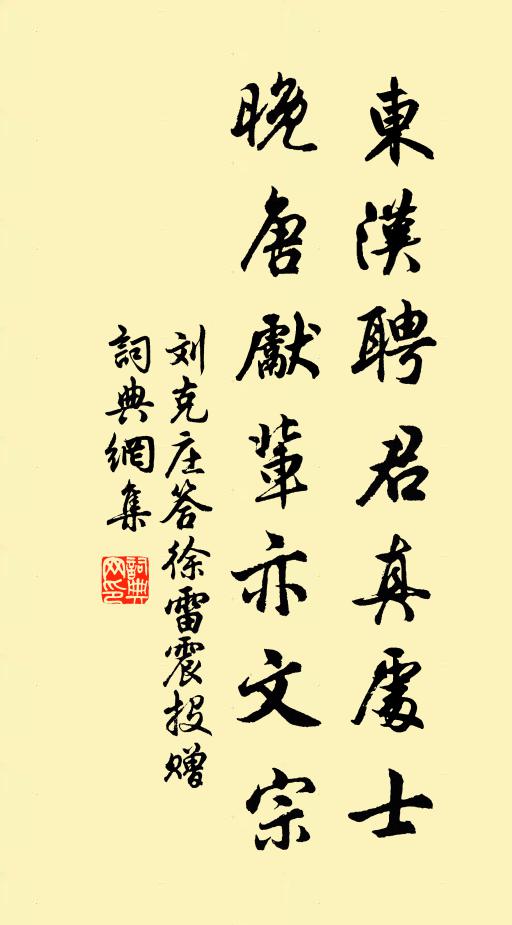 東漢聘君真處士
晚唐獻輩亦文宗
刘克庄答徐雷震投赠
詞典網集
詞典網印